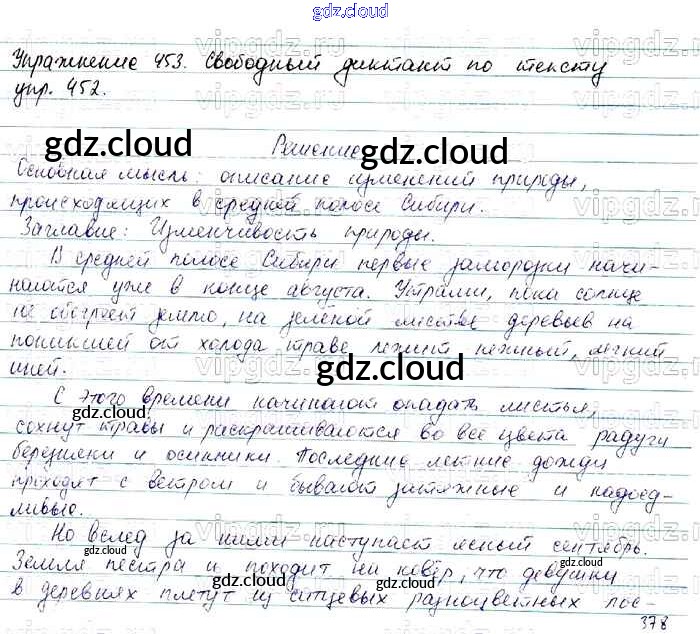 gdz.cloud
Упражнение 453. Свободный диктант по тексту
упр. 452.
gdz.cloud
Решение
gdz.cloud
Основная мысль: описание изменений природы,
происходящих в средней полосе Сибири.
Заглавие: Изменчивость природы.
В средней полосе Сибири первые заморозки начи-
наются уже в конце августа. Утрами, пока солнце
не обогреет землю, на зелёной листве деревьев на
поникшей от холода траве лежит нежный, мягкий
иней.
gdz.cloud
С этого времени начинают опадать листья,
gdz.cloud
gdz.cloud
сохнут травы и раскрашиваются во все цвета радуги
березняки и осинники. Последние летние дожди
проходят с ветром и бывают затяжные и надоед-
ливые.
gdz.cloud
Но вслед за ними наступает ясный сентябрь.
gdz.cloud
Земля пестра и походит на ковёр, что девушки
gdz.cloud
gdz.cloud
в деревнях плетут из ситцевых разноцветных лос-
378